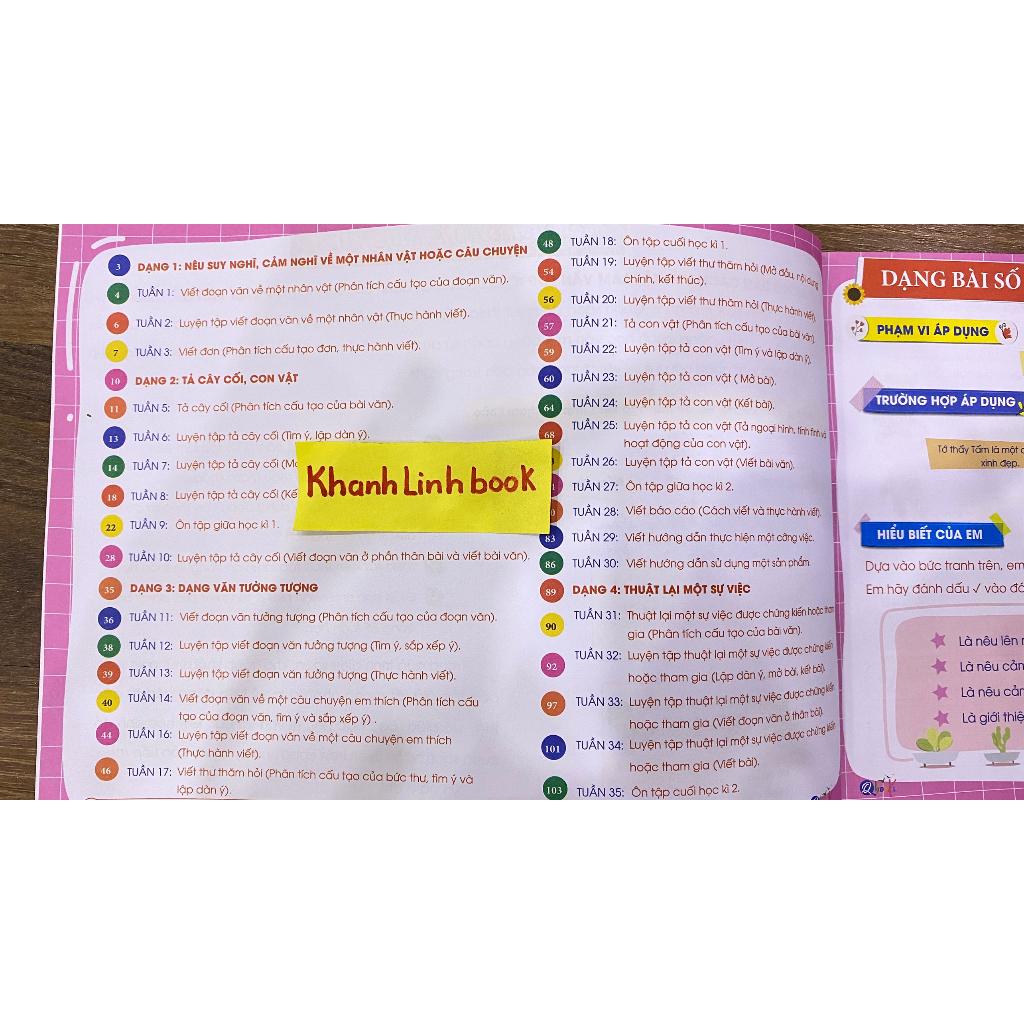 3 DẠNG 1: NÊU SUY NGHĨ, CẢM NGHĨ VỀ MỘT NHÂN VẬT HOẶC CÂU CHUYỆN
4 TUẦN 1: Viết đoạn văn về một nhân vật (Phân tích cấu tạo của đoạn văn).
6 TUẦN 2: Luyện tập viết đoạn văn về một nhân vật (Thực hành viết).
7 TUẦN 3: Viết đơn (Phân tích cấu tạo đơn, thực hành viết).
10 DẠNG 2: TẢ CÂY CỐI, CON VẬT
11 TUẦN 5: Tả cây cối (Phân tích cấu tạo của bài văn).
13 TUẦN 6: Luyện tập tả cây cối (Tìm ý, lập dàn ý).
14 TUẦN 7: Luyện tập tả cây cối
18 TUẦN 8: Luyện tập tả cây cối
22 TUẦN 9: Ôn tập giữa học kì 1.
28 TUẦN 10: Luyện tập tả cây cối (Viết đoạn văn ở phần thân bài và viết bài văn).
35 DẠNG 3: DẠNG VĂN TƯỞNG TƯỢNG
36 TUẦN 11: Viết đoạn văn tưởng tượng (Phân tích cấu tạo của đoạn văn).
38 TUẦN 12: Luyện tập viết đoạn văn tưởng tượng (Tìm ý, sắp xếp ý).
39 TUẦN 13: Luyện tập viết đoạn văn tưởng tượng (Thực hành viết).
40 TUẦN 14: Viết đoạn văn về một câu chuyện em thích (Phân tích cấu
tạo của đoạn văn, tìm ý và sắp xếp ý) .
44 TUẦN 16: Luyện tập viết đoạn văn về một câu chuyện em thích
(Thực hành viết).
46 TUẦN 17: Viết thư thăm hỏi (Phân tích cấu tạo của bức thư, tìm ý và
lập dàn ý).
Khanh Linh book
48 TUẦN 18: Ôn tập cuối học kì 1.
54 TUẦN 19: Luyện tập viết thư thăm hỏi (Mở đầu, nội dung
chính, kết thúc).
56 TUẦN 20: Luyện tập viết thư thăm hỏi (Thực hành viết).
57 TUẦN 21: Tả con vật (Phân tích cấu tạo của bài văn).
59 TUẦN 22: Luyện tập tả con vật (Tìm ý và lập dàn ý).
60 TUẦN 23: Luyện tập tả con vật ( Mở bài).
64 TUẦN 24: Luyện tập tả con vật (Kết bài).
68 TUẦN 25: Luyện tập tả con vật (Tả ngoại hình, tính tình và
hoạt động của con vật).
TUẦN 26: Luyện tập tả con vật (Viết bài văn).
TUẦN 27: Ôn tập giữa học kì 2.
TUẦN 28: Viết báo cáo (Cách viết và thực hành viết).
83 TUẦN 29: Viết hướng dẫn thực hiện một công việc.
86 TUẦN 30: Viết hướng dẫn sử dụng một sản phẩm.
89 DẠNG 4: THUẬT LẠI MỘT SỰ VIỆC
90 TUẦN 31: Thuật lại một sự việc được chứng kiến hoặc tham
gia (Phân tích cấu tạo của bài văn).
92 TUẦN 32: Luyện tập thuật lại một sự việc được chứng kiến
hoặc tham gia (Lập dàn ý, mở bài, kết bài).
97 TUẦN 33: Luyện tập thuật lại một sự việc được chứng kiến
hoặc tham gia (Viết đoạn văn ở thân bài).
101 TUẦN 34: Luyện tập thuật lại một sự việc được chứng kiến
hoặc tham gia (Viết bài).
103 TUẦN 35: Ôn tập cuối học kì 2.
DẠNG BÀI SỐ
PHẠM VI ÁP DỤNG
TRƯỜNG HỢP ÁP DỤNG
Tớ thấy Tấm là một
xinh đẹp.
HIỂU BIẾT CỦA EM
Dựa vào bức tranh trên, em
Em hãy đánh dấu ✓ vào
Là nêu lên
Là nêu
Là nêu
Là giới